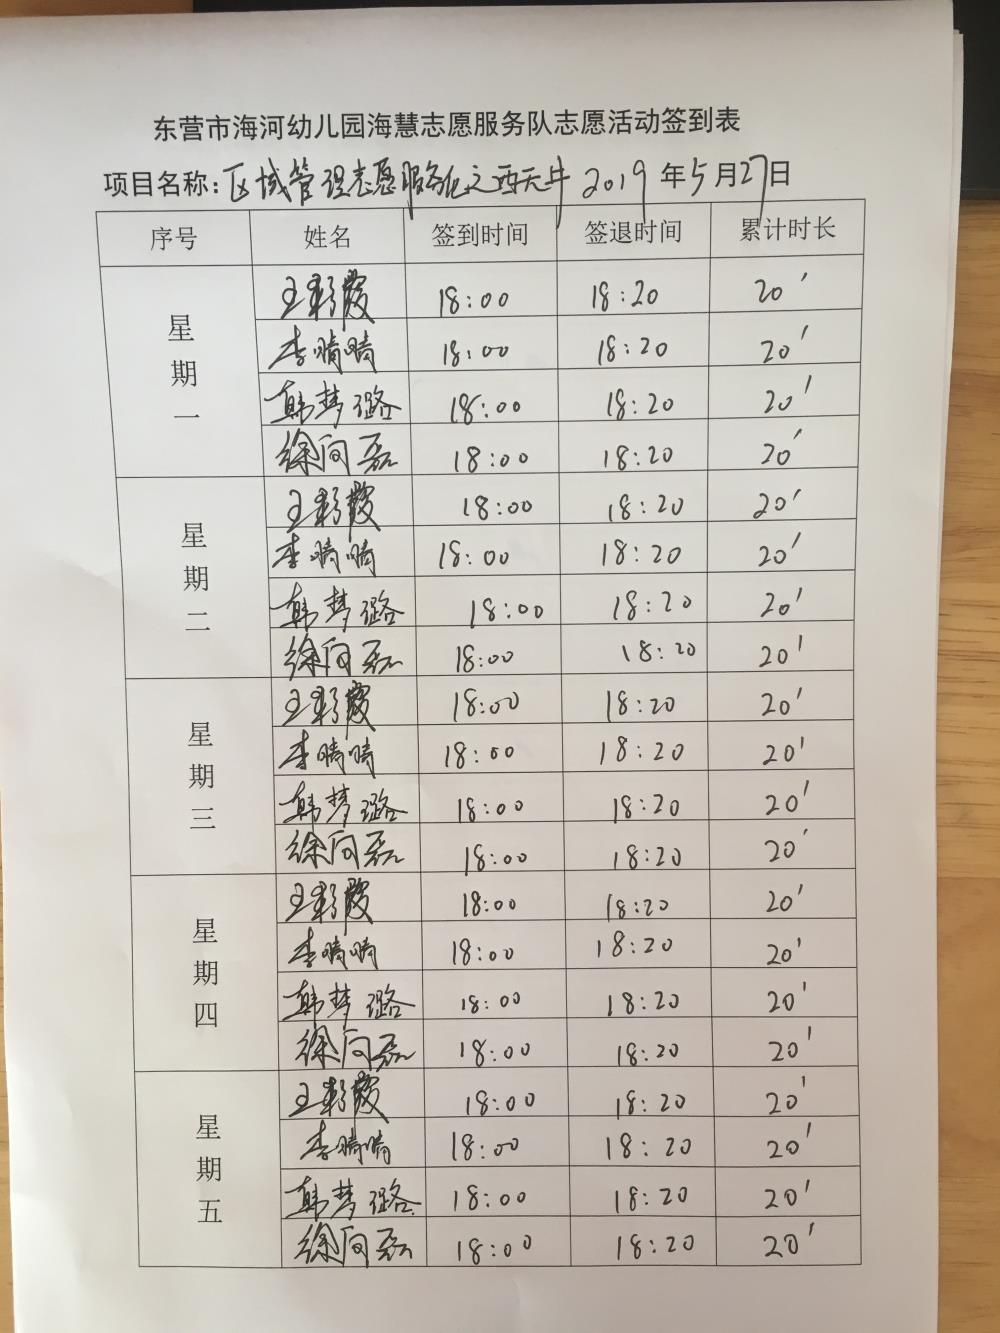 东营市海河幼儿园海慧志愿服务队志愿活动签到表
项目名称:区域管理志愿服务 2019年5月27日
序号 姓名 签到时间 签退时间 累计时长
星期一 王彩霞 18:00 18:20 20′
李晴晴 18:00 18:20 20′
韩梦璐 18:00 18:20 20′
徐向磊 18:00 18:20 20′
星期二 王彩霞 18:00 18:20 20′
李晴晴 18:00 18:20 20′
韩梦璐 18:00 18:20 20′
徐向磊 18:00 18:20 20′
星期三 王彩霞 18:00 18:20 20′
李晴晴 18:00 18:20 20′
韩梦璐 18:00 18:20 20′
徐向磊 18:00 18:20 20′
星期四 王彩霞 18:00 18:20 20′
李晴晴 18:00 18:20 20′
韩梦璐 18:00 18:20 20′
徐向磊 18:00 18:20 20′
星期五 王彩霞 18:00 18:20 20′
李晴晴 18:00 18:20 20′
韩梦璐 18:00 18:20 20′
徐向磊 18:00 18:20 20′